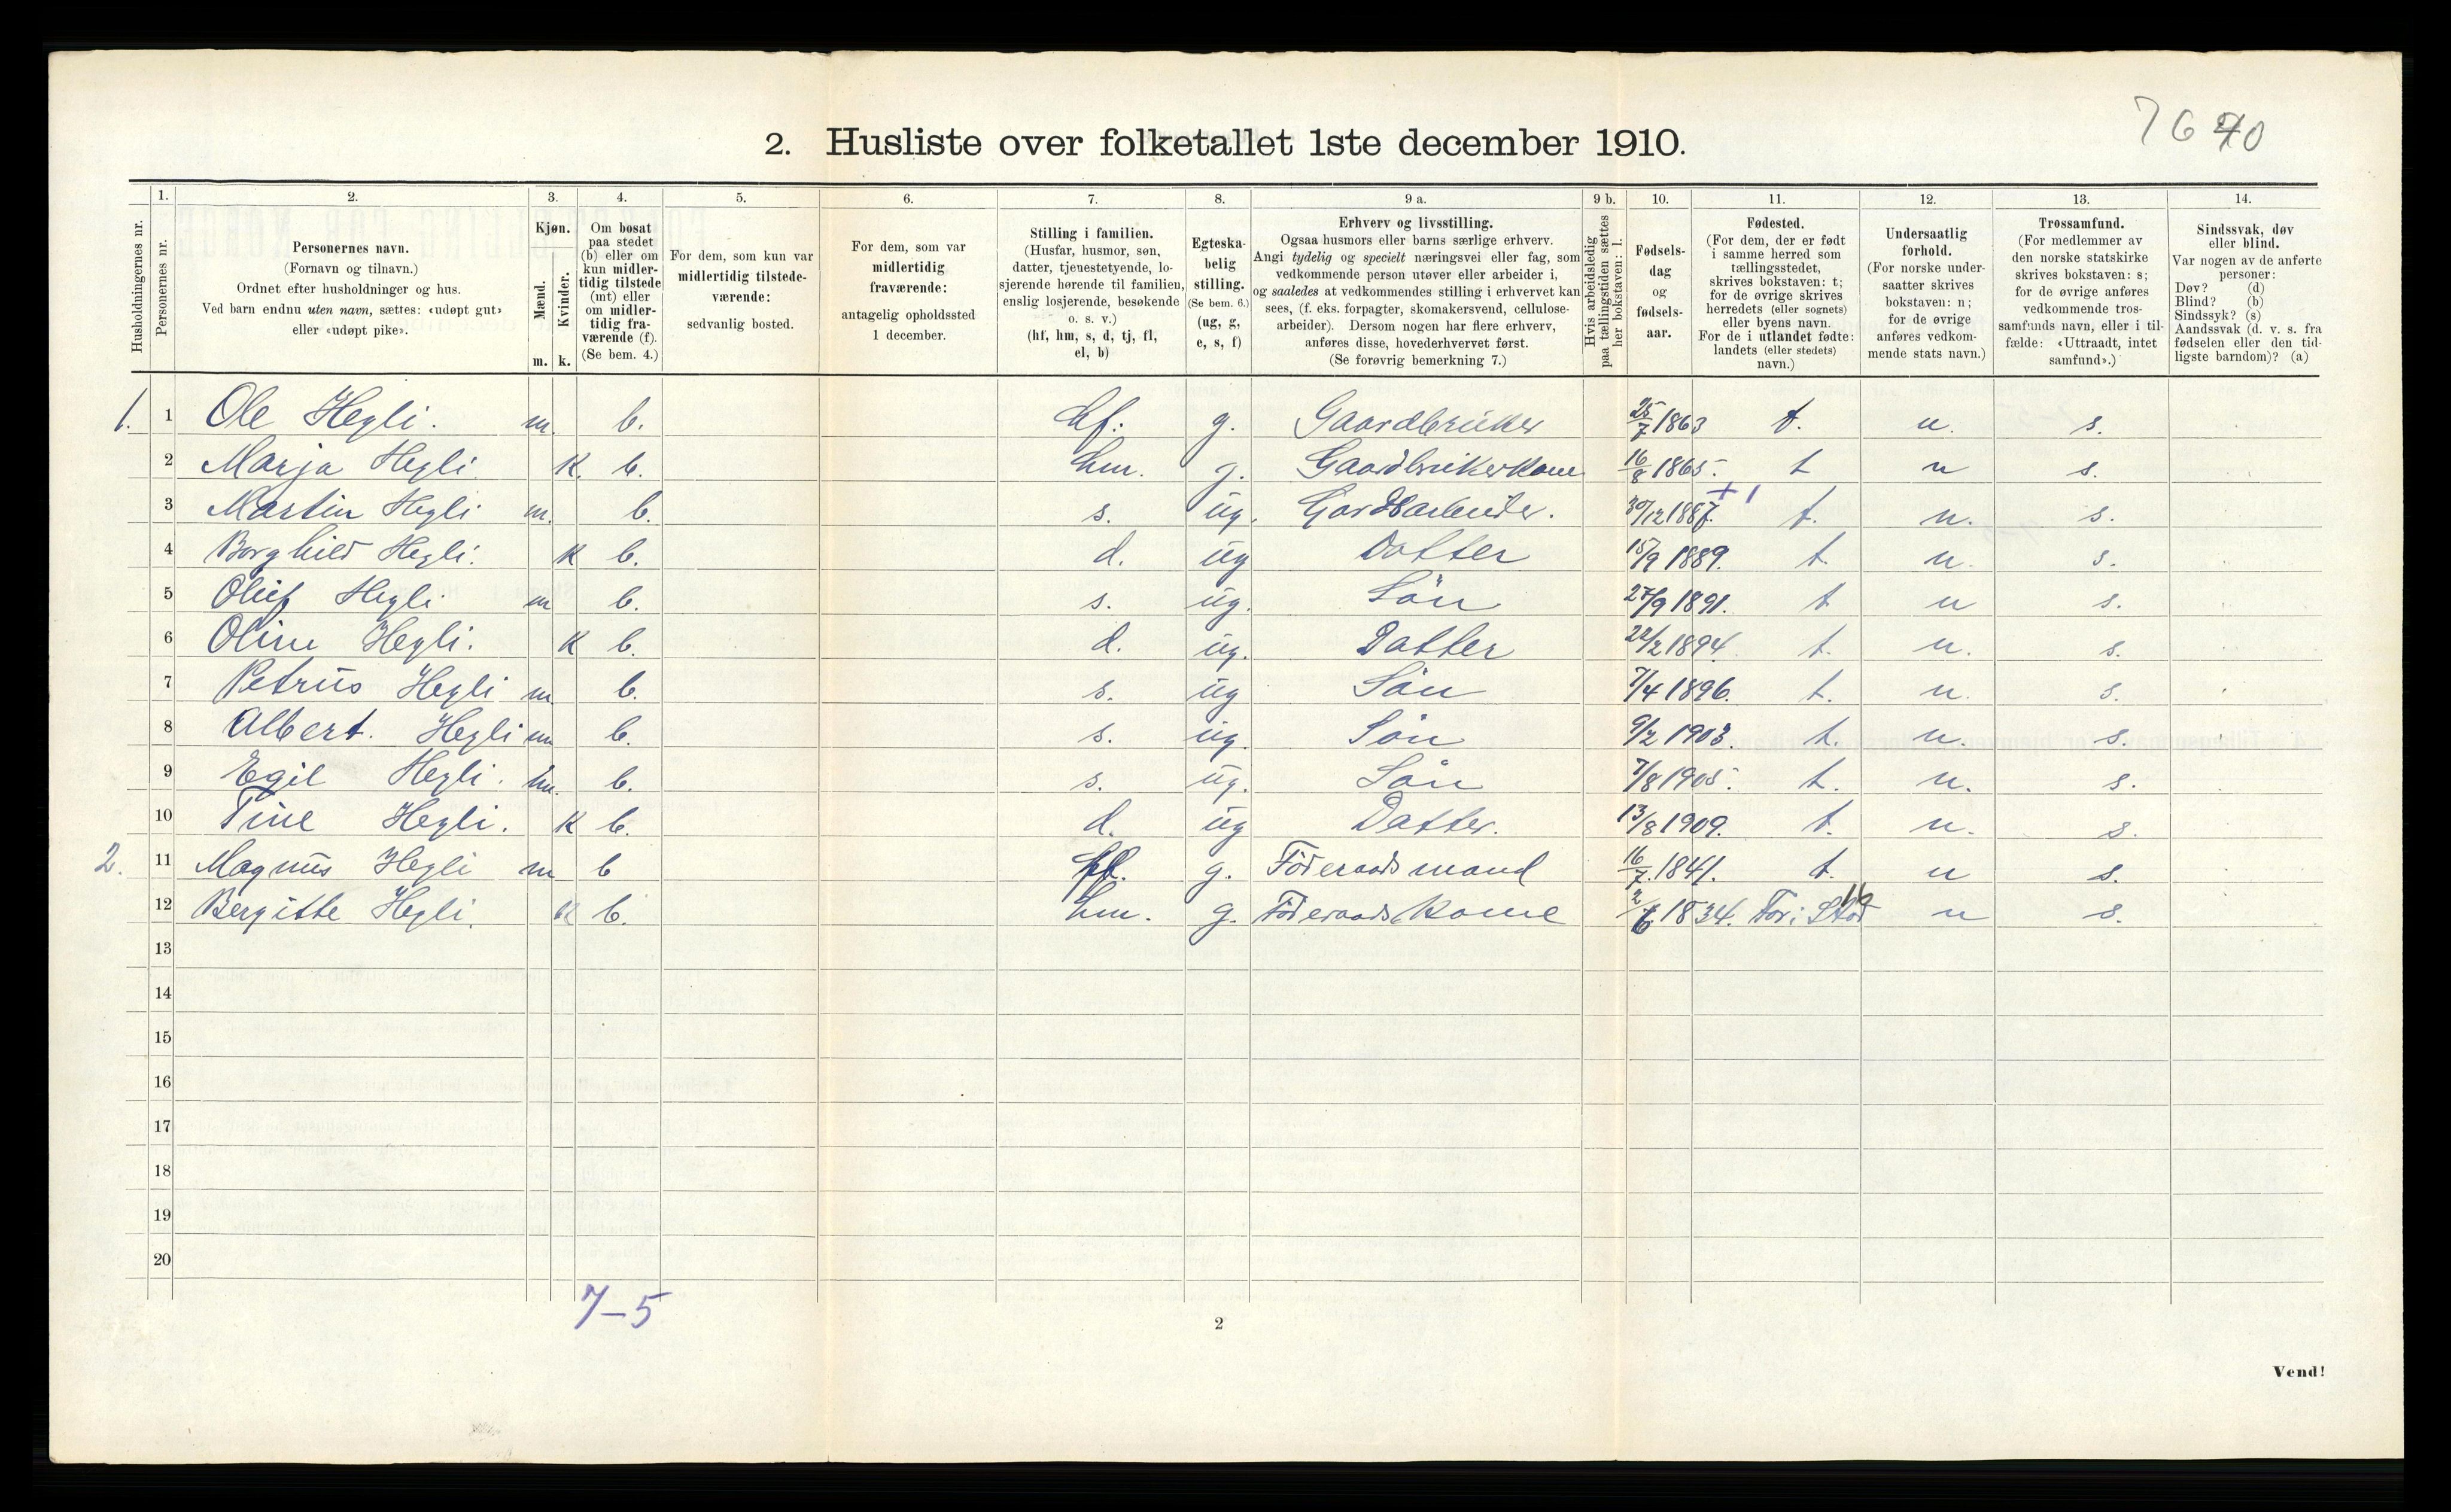 7640
2. Husliste over folketallet 1ste december 1910.
1. 2. 3. 4. 5. 6. 7. 8. 9 a. 9 b. 10. 11. 12. 13. 14.
Husholdningernes nr.
Personernes nr.
Personernes navn.
(Fornavn og tilnavn.)
Ordnet efter husholdninger og hus.
Ved barn endnu uten navn, sættes: «udøpt gut»
eller «udøpt pike».
Kjøn.
Mænd.
Kvinder.
m. k.
Om bosat
paa stedet
(b) eller om
kun midler-
tidig tilstede
(mt) eller
om midler-
tidig fra-
værende (f).
(Se bem. 4.)
For dem, som kun var
midlertidig tilstede-
værende:
sedvanlig bosted.
For dem, som var
midlertidig
fraværende:
antagelig opholdssted
1 december.
Stilling i familien.
(Husfar, husmor, søn,
datter, tjenestetyende, lo-
sjerende hørende til familien,
enslig losjerende, besøkende
o. s. v.)
(hf, hm, s, d, tj, fl,
el, b)
Egteska-
belig
stilling.
(Se bem. 6.)
(ug, g,
e, s, f)
Erhverv og livsstilling.
Ogsaa husmors eller barns særlige erhverv.
Angi tydelig og specielt næringsvei eller fag, som
vedkommende person utøver eller arbeider i,
og saaledes at vedkommendes stilling i erhvervet kan
sees, (f. eks. forpagter, skomakersvend, cellulose-
arbeider). Dersom nogen har flere erhverv,
anføres disse, hovederhvervet først.
(Se forøvrig bemerkning 7.)
Hvis arbeidsledig
paa tællingstiden sættes
her bokstaven: l.
Fødsels-
dag
og
fødsels-
aar.
Fødested.
(For dem, der er født
i samme herred som
tællingsstedet,
skrives bokstaven: t;
for de øvrige skrives
herredets (eller sognets)
eller byens navn.
For de i utlandet fødte:
landets (eller stedets)
navn.)
Undersaatlig
forhold.
(For norske under-
saatter skrives
bokstaven: n;
for de øvrige
anføres vedkom-
mende stats navn.)
Trossamfund.
(For medlemmer av
den norske statskirke
skrives bokstaven: s;
for de øvrige anføres
vedkommende tros-
samfunds navn, eller i til-
fælde: «Uttraadt, intet
samfund».)
Sindssvak, døv
eller blind.
Var nogen av de anførte
personer:
Døv? (d)
Blind? (b)
Sindssyk? (s)
Aandssvak (d. v. s. fra
fødselen eller den tid-
ligste barndom)? (a)
1. 1 Ole Hegli. m. b. hf. g. Gaardbruker 25/7 1863 t. n. s.
2 Marja Hegli. K. b. hm. g. Gaardbrukerkone 16/8 1865. t n s.
3 Martin Hegli m. b. s. ug. Gardsarbeider. 30/12 1887. t. n. s.
4 Borghild Hegli. K b. d. ug Datter 15/9 1889. t. n. s.
5 Oluf Hegli m b. s. ug. Sön 27/9 1891. t n s.
6 Oline Hegli. K b. d. ug. Datter 22/2 1894. t. n. s.
7 Petrus Hegli m. b. s. ug Sön 7/4 1896. t. n. s.
8 Albert. Hegli m b. s. ug. Sön 9/2 1903. t. n. s.
9 Egil Hegli. m. b. s. ug. Sön 7/8 1905. t. n. s.
10 Tine Hegli. K b. d. ug Datter. 13/8 1909. t. n. s.
2. 11 Magnus Hegli m b g. Föderaadsmand 16/7. 1841. t. n s.
12 Bergitte Hegli. K b. hm. g. Föderaads Kone 2/6 1834. For i Stod n s.
13
14
15
16
17
18
19
20
7-5
2
Vend!